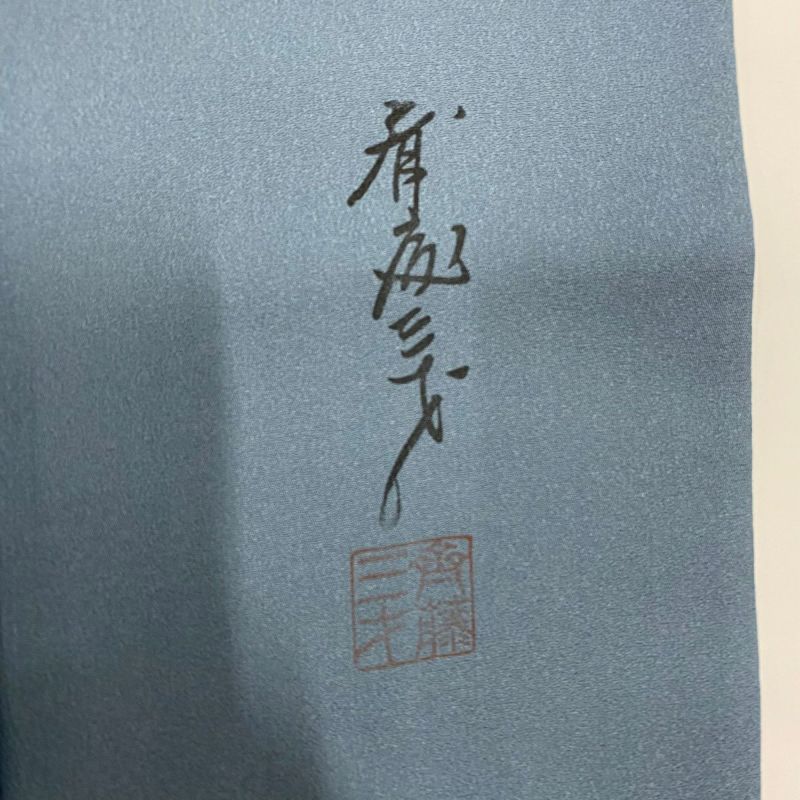 斉藤三才
斉藤
三才